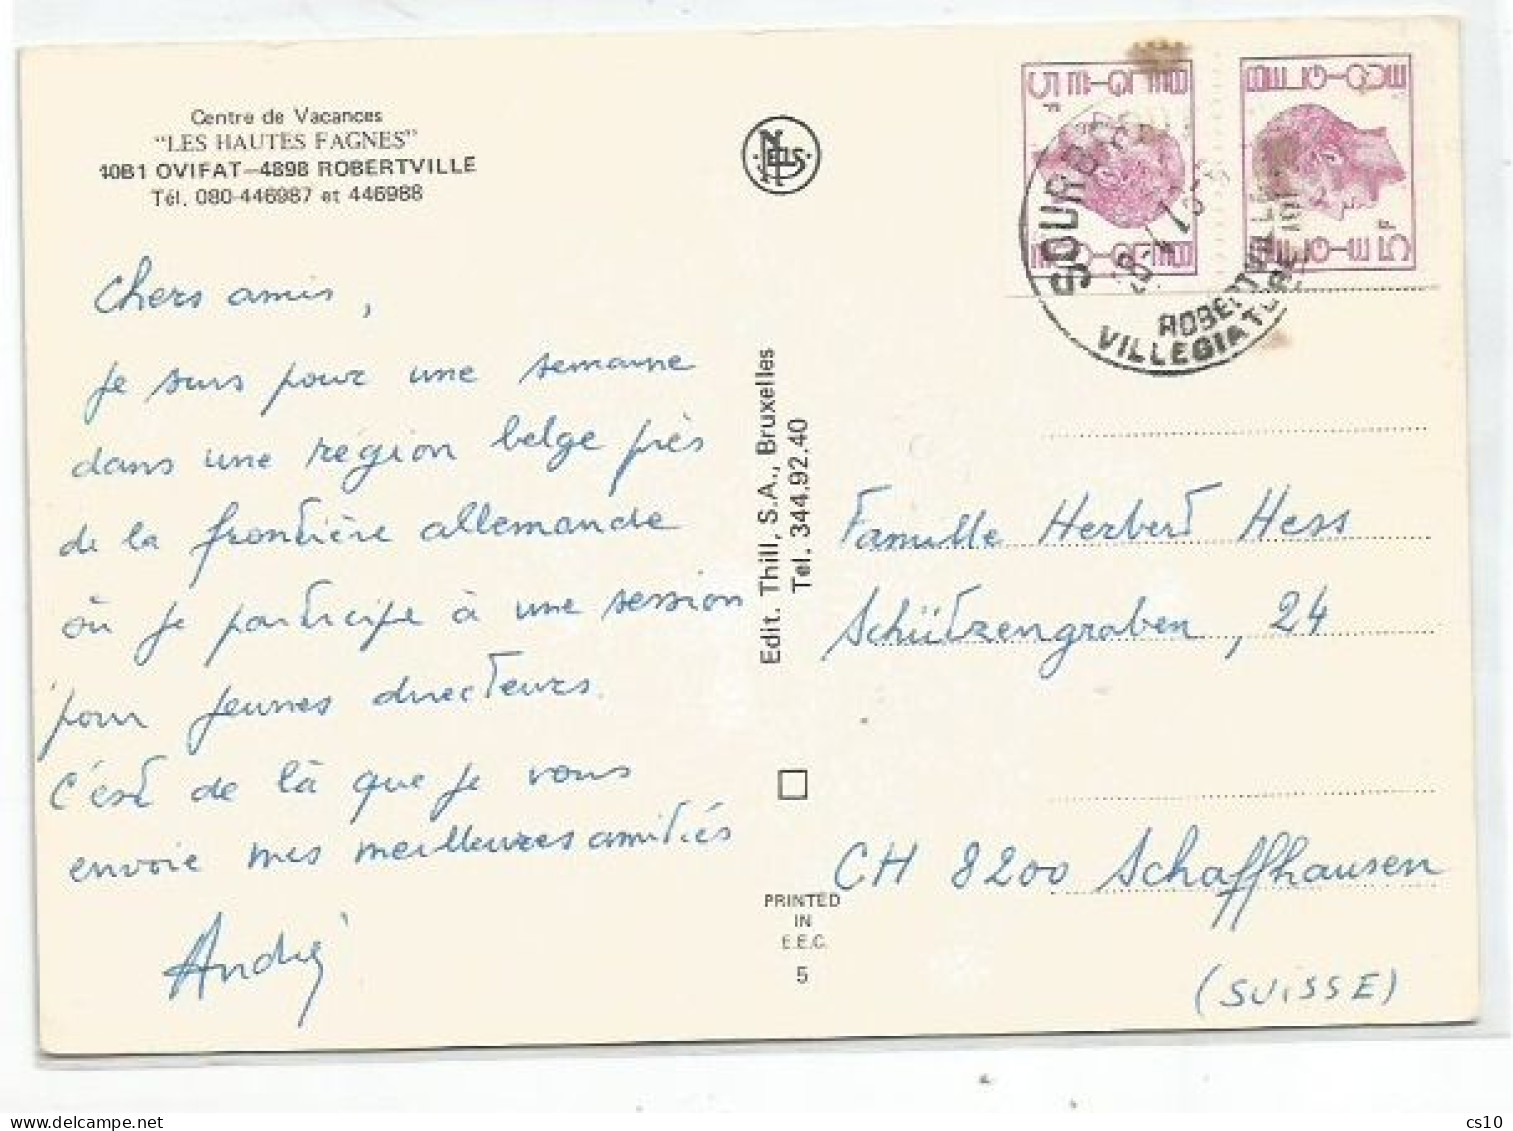 Centre de Vacances
"LES HAUTES FAGNES"
10B1 OVIFAT-4898 ROBERTVILLE
Tél. 080-446987 et 446988
Chers amis,
je suis pour une semaine
dans une région belge près
de la frontière allemande
où je participe à une session
pour jeunes directeurs.
C'est de là que je vous
envoie mes meilleures amitiés
André
NELS
Edit. Thill, S.A., Bruxelles
Tel. 344.92.40
PRINTED
IN
E.E.C.
5
BELGIE 5F
BELGIQUE
BELGIQUE
BELGIE 5F
SOURBRODT
ROBERTVILLE
VILLEGIATURE
Famille Herbert Hess
Schützengraben, 24
CH 8200 Schaffhausen
(SUISSE)
cs10